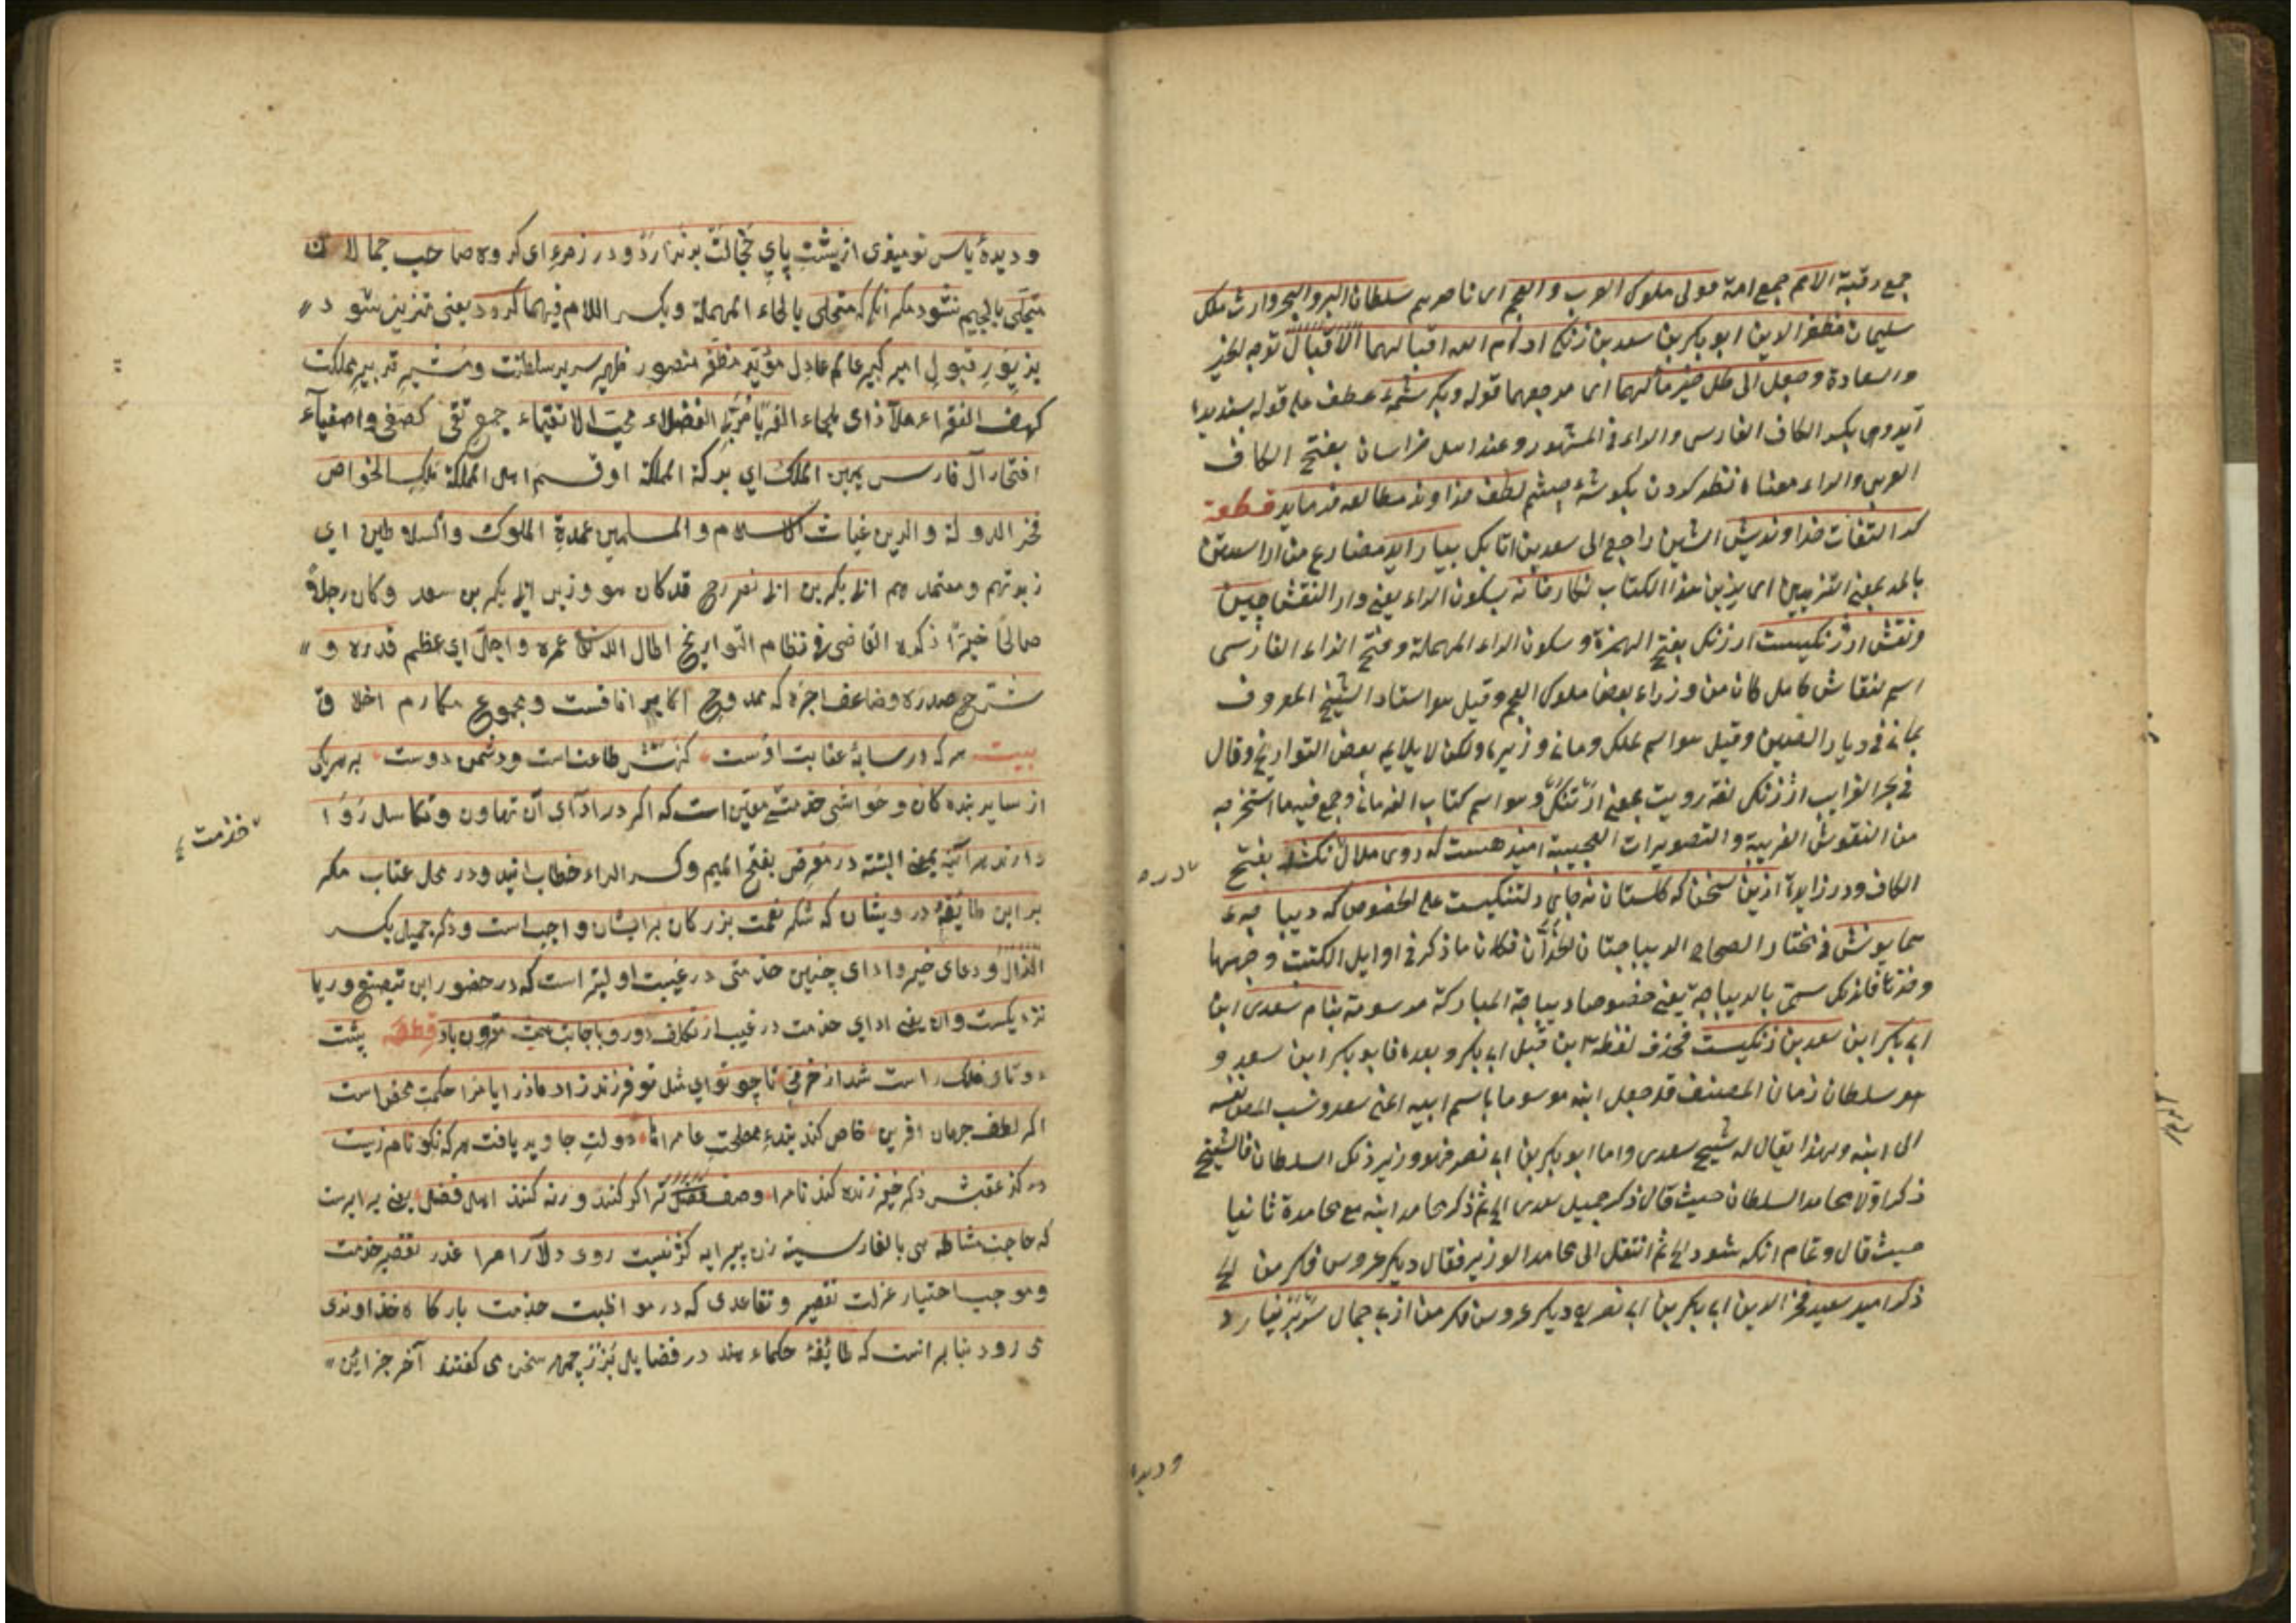 جمع رقبة الامم جمع امة مولى ملوك العرب والعجم اى ناصرهم سلطان البر والبحر وارث ملك
سليمان مظفر الدين ابو بكر بن سعد بن زنكى ادام الله اقبالهما الاقبال توجه الخير
والسعادة وجعل الى كل خير مآلهما اى مرجعهما قوله وبكرشمهٔ عطف على قوله بسنديده
آيد وهى بكسر الكاف الفارسى والراء فى المشهور وعند اهل خراسان بفتح الكاف
العربى والراء معناه نظر كردن بكوشهٔ چشم لطف خداوند مطالعه فرمايد قطعة
كر التفات خداونديش الشين راجع الى سعد بن اتابك بيارايد مضارع من اراستن
بالمد بمعنى التزيين اى يزين هذا الكتاب نكارخانه بسكون الراء يعنى دار النقش چينى
ونقش ارژنكيست ارژنك بفتح الهمزة وسكون الراء المهملة وفتح الزاء الفارسى
اسم لنقاش كامل كان من وزراء بعض ملوك العجم وقيل هو استاد الشيخ المعروف
بمانى فى ديار الصين وقيل هو اسم لملك ومانى وزيره ولكن لا يلايمه بعض التواريخ وقال
فى بحر الغرايب ارژنك لغة رويت بمعنى ارتنك وهو اسم كتاب الفه مانى وجمع فيه ما استخرجه
من النقوش الغريبة والتصويرات العجيبة اميد هست كه روى ملال نكشد بفتح
الكاف ودر زايدة ازين سخن كه كلستان نه جاى دلتنكيست على الخصوص كه ديباچهٔ
همايونش فى مختار الصحاح الديباجتان الخدان فكان ما ذكر فى اوايل الكتب وجهها
وخدها فلذلك سمى بالديباجة يعنى خصوصا ديباجة المباركة مرسومة بنام سعدى ابن
ابى بكر ابن سعد بن زنكيست فحذف لفظة ابن قبل ابى بكر وبعده فابو بكر ابن سعد و
هو سلطان زمان المصنف قد جعل ابنه موسوما باسم ابيه اعنى سعد ونسب المص نفسه
الى ابنه ولهذا يقال له شيخ سعدى واما ابو بكر بن ابى نصر فهو وزير ذلك السلطان فالشيخ
ذكر اولا محامد السلطان حيث قال ذكر جميل سعدى الخ ثم ذكر محامد ابنه مع محامده ثانيا
حيث قال وتمام انكه شود الخ ثم انتقل الى محامد الوزير فقال ديكر عروس فكر من الخ
ذكر امير سعيد فخر الدين ابى بكر بن ابى نصر ديكر عروس فكر من از بى جمالى سر بر نيارد
وديده
وديدهٔ ياس نوميذى از پشت پاي خجالت برندارد ودر زمرهٔ اى كروه صاحب جمالان
متجلى بالجيم نشود مكر انكه كه متحلى بالحاء المهملة وبكسر اللام فيهما كردد يعنى متزين شود
بزيور قبول امير كبير عالم عادل مؤيد مظفر منصور ظهير سرير سلطنت ومشير تدبير مملكت
كهف الفقراء ملاذ اى ملجاء الغربا مربى الفضلاء محب الاتقياء جمع تقى كصفى واصفيآء
افتخار آل فارس يمين الملك اي بركة المملكة او قسم اهل المملكة ملك الخواص
فخر الدولة والدين غياث الاسلام والمسلمين عمدة الملوك والسلاطين اي
زبدتهم ومعتمدهم ابى بكر بن ابى نصر رح قد كان هو وزير ابى بكر بن سعد وكان رجلا
صالحا خيرا ذكره القاضى فى نظام التواريخ اطال الله عمره واجل اي عظم قدره و
شرح صدره وضاعف اجره كه ممدوح اكابر افاقست ومجموع مكارم اخلاق
بيت هركه در سايهٔ عنايت اوست كنهش طاعتست ودشمن دوست بهر يكى
از ساير بنده كان وحواشى خدمتى معين است كه اكر در اداى آن تهاون وتكاسل روا
خدمت
دارند هراينه بمعنى البتة در معرض بفتح الميم وكسر الراء خطاب ايند ودر محل عتاب مكر
بر اين طايفهٔ درويشان كه شكر نعمت بزركان برايشان واجب است وذكر جميل بكسر
الذال ودعاى خير واداى چنين خدمتى در غيبت اوليتر است كه در حضور اين بتصنع وريا
نزديكست وان يعنى اداي خدمت در غيب از تكلف دور وباجابت مقرون باد قطعه پشت
دوتاى فلك راست شد از خرمى تا چو تو اى مثل تو فرزند زاد مادر ايام را حكمت محض است
اكر لطف جهان افرين خاص كند بندهٔ مصلحت عام را دولت جاويد يافت هركه نكونام زيست
كز عقبش ذكر خير زنده كند نام را وصف ترا كر كنند ورنه كنند اهل فضل يعنى برابرست
كه حاجت مشاطه هى بالفارسية زن پيرايه كر نيست روى دلارام را عذر تقصير خدمت
وموجب اختيار عزلت تقصير وتقاعدى كه در مواظبت خدمت باركاه خداوندى
مى رود بنابر انست كه طايفهٔ حكماء هند در فضايل بزرجمهر سخن مى كفتند آخر جز اين